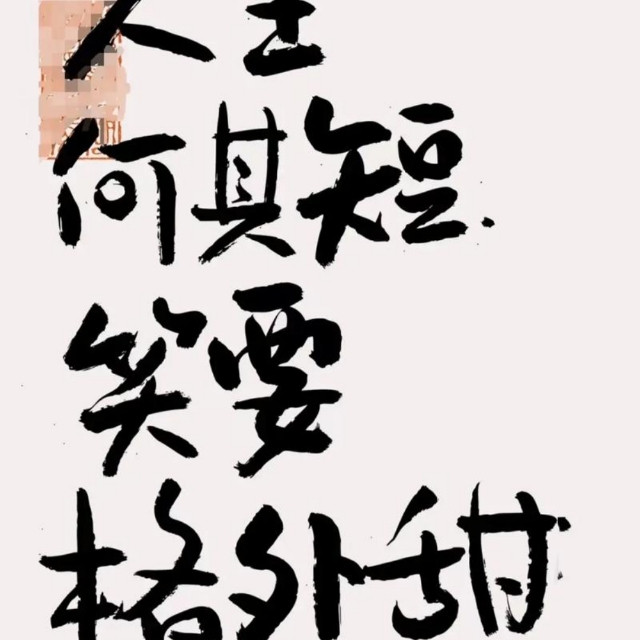 人生
何其短
笑要
格外甜